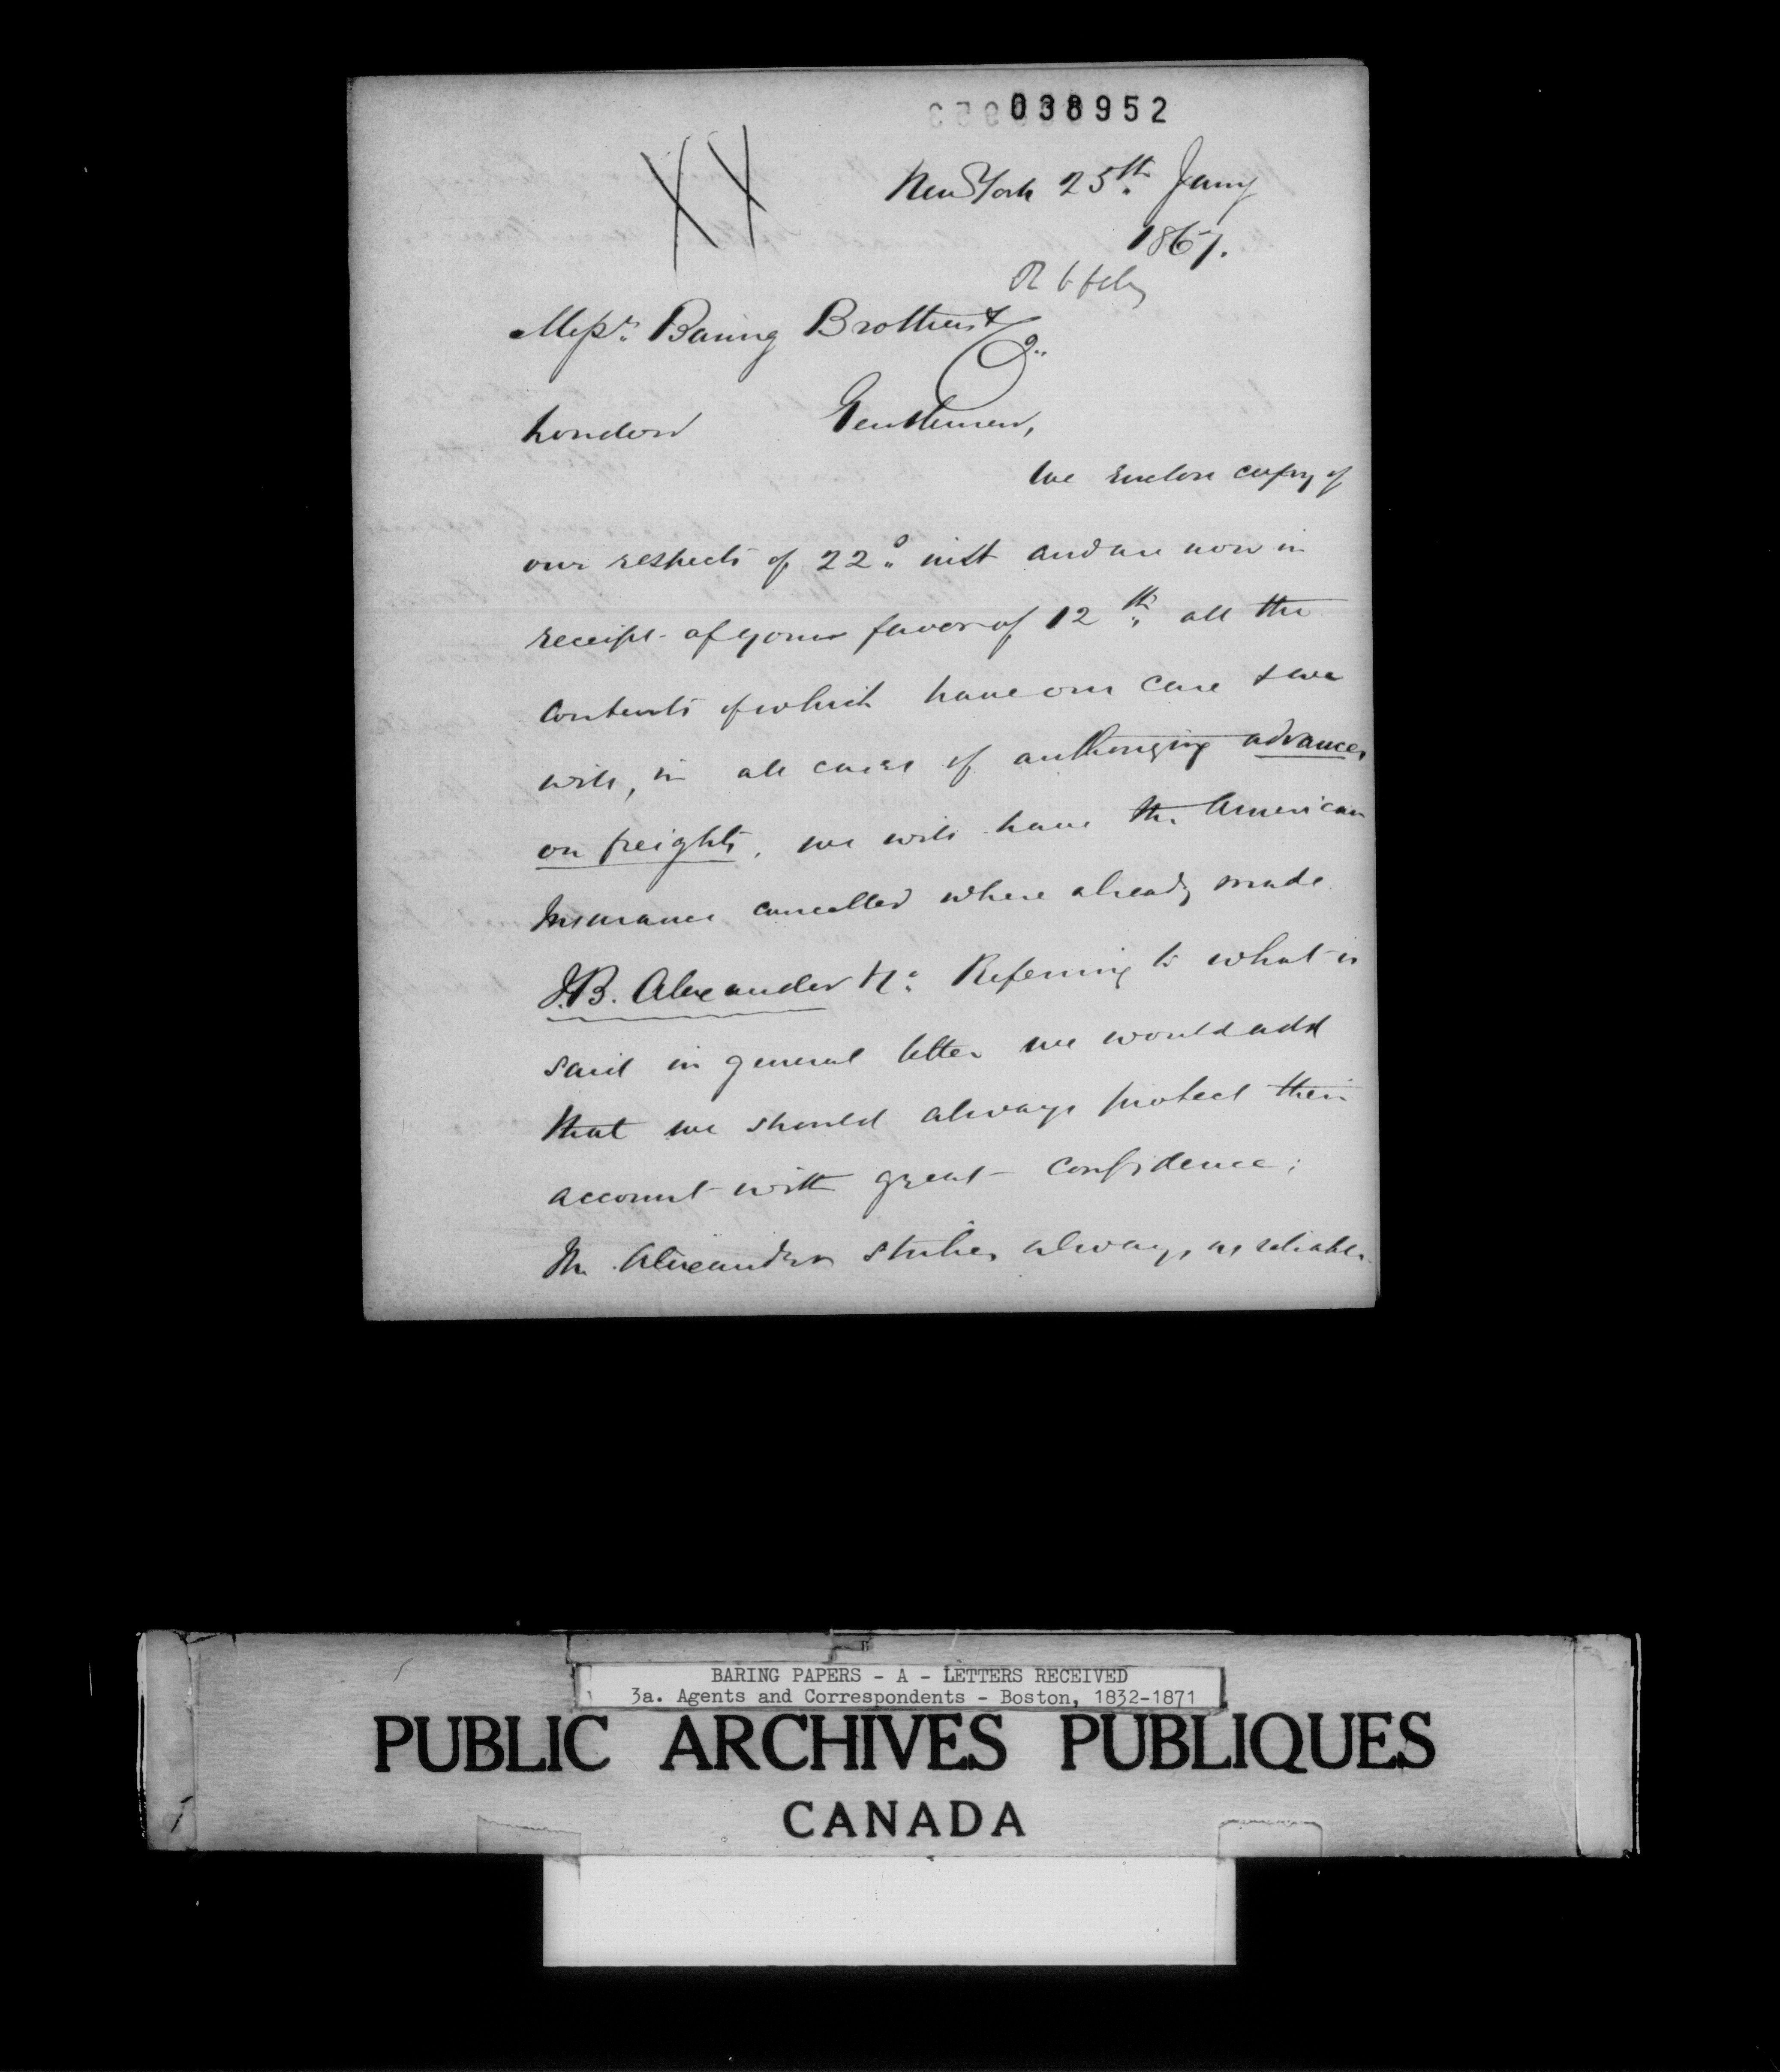 038952
New York 25th Jany
1867.
R 6 feby
Messrs. Baring Brothers &
Co.
London Gentlemen,
We enclose copy of
our respects of 22d inst and are now in
receipt of your favor of 12th all the
contents of which have our care & we
will, in all cases of authorizing advances
on freights, we will have the American
Insurance cancelled where already made.
J.B. Alexander Referring to what is
said in general letter we would add
that we should always protect their
account with great confidence;
Mr. Alexander strikes always as reliable
BARING PAPERS - A - LETTERS RECEIVED
3a. Agents and Correspondents - Boston, 1832-1871
PUBLIC ARCHIVES PUBLIQUES
CANADA